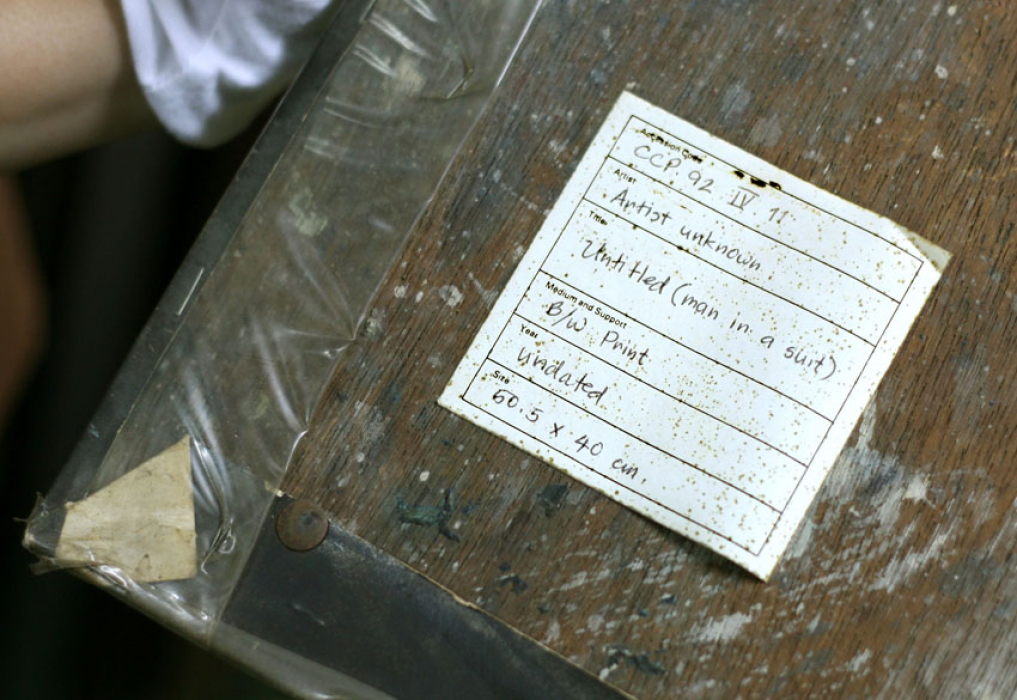 Accession Code
CCP. 92 IV. 11
Artist
Artist unknown
Title
Untitled (man in a suit)
Medium and Support
B/W Print
Year
undated
Size
50.5 x 40 cm.